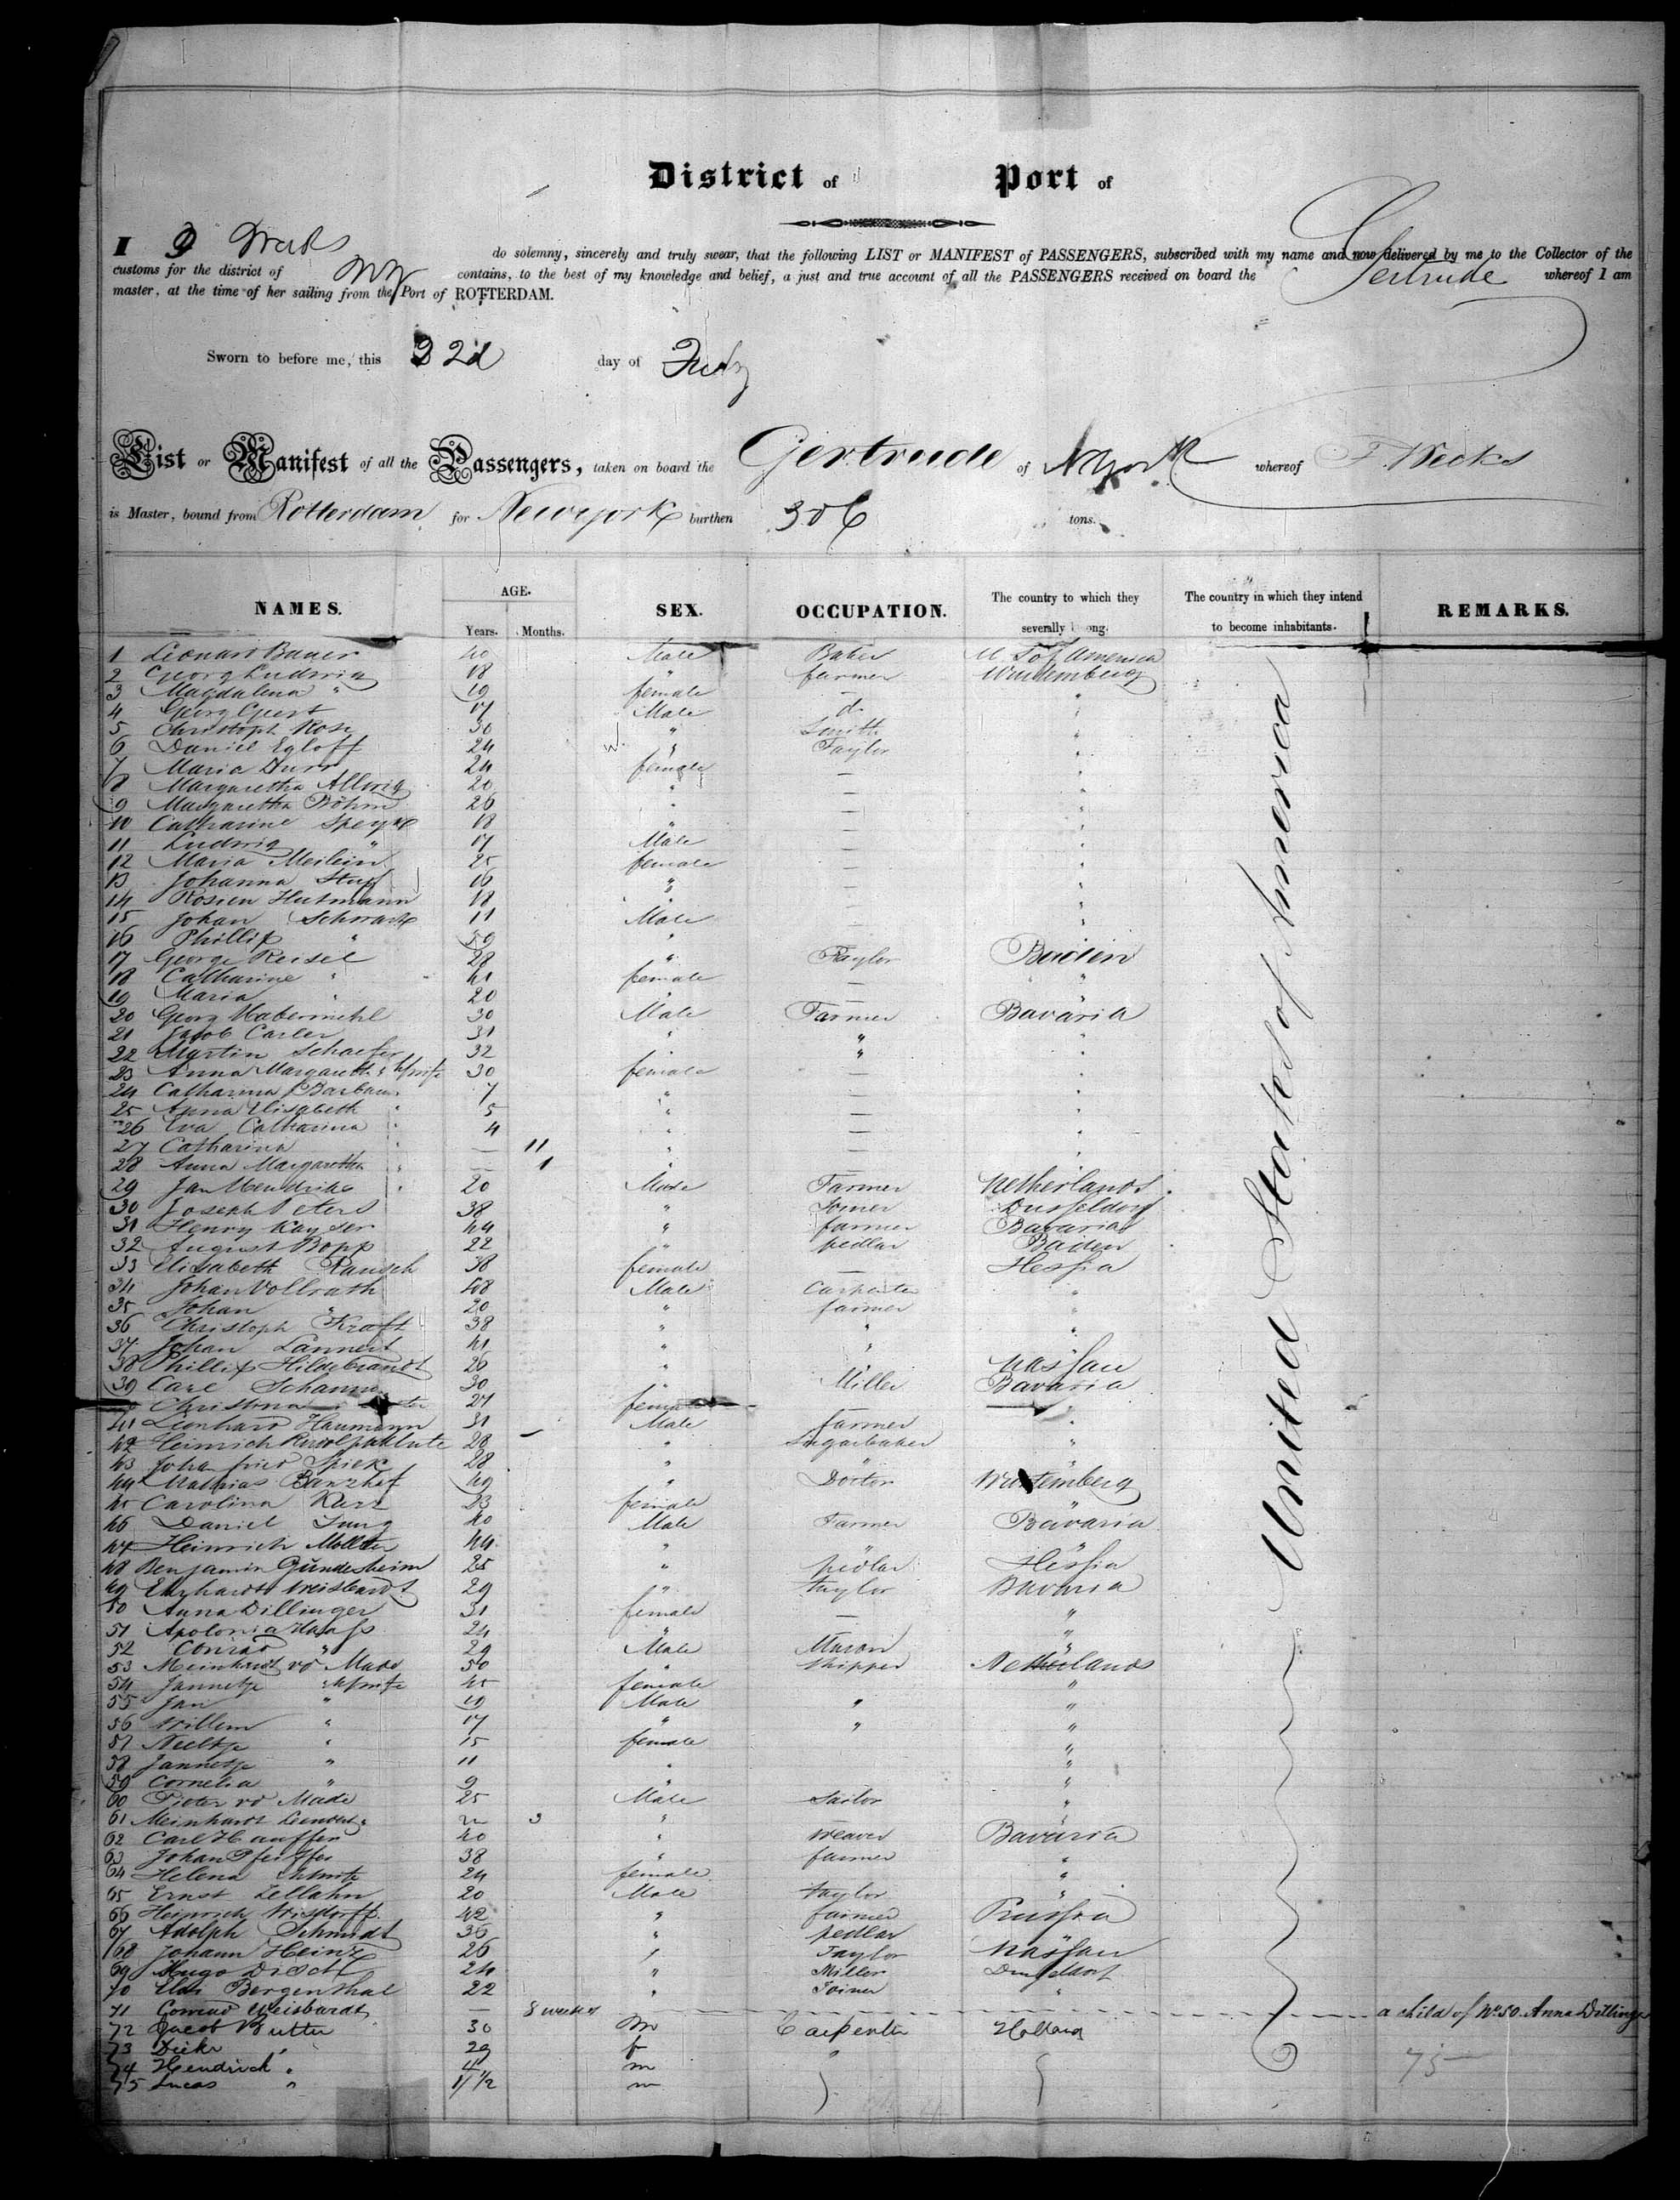 District of Port of
I do solemny, sincerely and truly swear, that the following LIST or MANIFEST of PASSENGERS, subscribed with my name and now delivered by me to the Collector of the
customs for the district of NY contains, to the best of my knowledge and belief, a just and true account of all the PASSENGERS received on board the Gertrude whereof I am
master, at the time of her sailing from the Port of ROTTERDAM.
Sworn to before me, this 22d day of July
List or Manifest of all the Passengers, taken on board the Gertrude of NYork whereof F. Weeks
is Master, bound from Rotterdam for Newyork burthen 306 tons.
NAMES. AGE. SEX. OCCUPATION. The country to which they severally The country in which they intend to become inhabitants. REMARKS.
Years. Months.
United States of America
1 Leonard Bauer 40 Male Baker U S of America
2 Georg Ludwig 18 " farmer Wurtemberg
3 Magdalena " 19 female — "
4 Georg 17 Male d. "
5 Christoph Rose 30 " Smith "
6 Daniel Egloff 24 " Taylor "
7 Maria Durr 24 female — "
8 Margaretha 20 " — "
9 Margaretha Böhm 26 " — "
10 Catharine 18 " — "
11 Ludwig " 17 Male — "
12 Maria 25 female — "
13 Johanna 16 " — "
14 Rosien Hutmann 18 " — "
15 Johan Schwartz 11 Male — "
16 Phillip " 59 " — "
17 George Reisel 28 " Taylor Baden
18 Catharine " 41 female — "
19 Maria " 20 " — "
20 Georg Habermehl 30 Male Farmer Bavaria
21 Jacob Carler 31 " " "
22 Martin Schaefer 32 " " "
23 Anna Margareth s/wife 30 female — "
24 Catharina Barbara 7 " — "
25 Anna Elisabeth " 5 " — "
26 Eva Catharina " 4 " — "
27 Catharina " — 11 " — "
28 Anna Margaretha " — 1 " — "
29 Jan Hendriks 20 Male Farmer Netherlands
30 Joseph Peters 38 " Joiner Dusseldorf
31 Henry Kayser 44 " farmer Bavaria
32 August Bopp 22 " pedlar Baden
33 Elisabeth Rausch 38 female — Hessia
34 Johan Vollrath 48 Male Carpenter "
35 Johan " 20 " farmer "
36 Christoph Kraft 38 " " "
37 Johan Lannert 41 " " "
38 Phillip Hildebrandt 26 " " Nassau
39 Carl Schamm 30 " Miller Bavaria
Christina 27 female — "
41 Leonhard Haumann 31 Male farmer "
42 Heinrich 28 " Sugarbaker "
43 Joha fried Spiek 28 " " "
44 Mathias Banzhaf 49 " Doctor Wurtemberg
45 Carolina Kurz 23 female "
46 Daniel Jung 40 Male Farmer Bavaria
47 Heinrich 44 " " "
48 Benjamin Gundesheim 25 " pedlar Hessia
49 Erhardt Weisbardt 29 " taylor Bavaria
50 Anna Dillinger 31 female — "
51 Apolonia Haass 24 " "
52 Conrad " 29 Male Mason "
53 Meinhardt vd Made 50 " skipper Netherlands
54 Jannetje s/wife 45 female "
55 Jan " 19 Male " "
56 Willem " 17 " " "
57 Neeltje " 15 female "
58 Jannetje " 11 " "
59 Cornelia " 9 " "
60 Pieter vd Made 25 Male Sailor "
61 Meinhardt Leendert " 2 3 " "
62 Carl Hauffer 40 " Weaver Bavaria
63 Johan Pfeiffer 38 " farmer "
64 Helena 24 female "
65 Ernst Zellahn 20 Male taylor "
66 Heinrich Wisdorff 42 " farmer Prussia
67 Adolph Schmidt 36 " pedlar "
68 Johann Heinz 26 " Taylor Nassau
69 Hugo Disch 24 " Miller Dusseldorf
70 Elias Bergenthal 22 " Joiner "
71 Conrad Weisbardt — 8 weeks a child of No. 50 Anna Dillinger
72 Jacob Butter 30 m Carpenter Holland
73 Dirkr " 29 f "
74 Hendrick " 4 m
75 Lucas " 1 1/2 m
75—